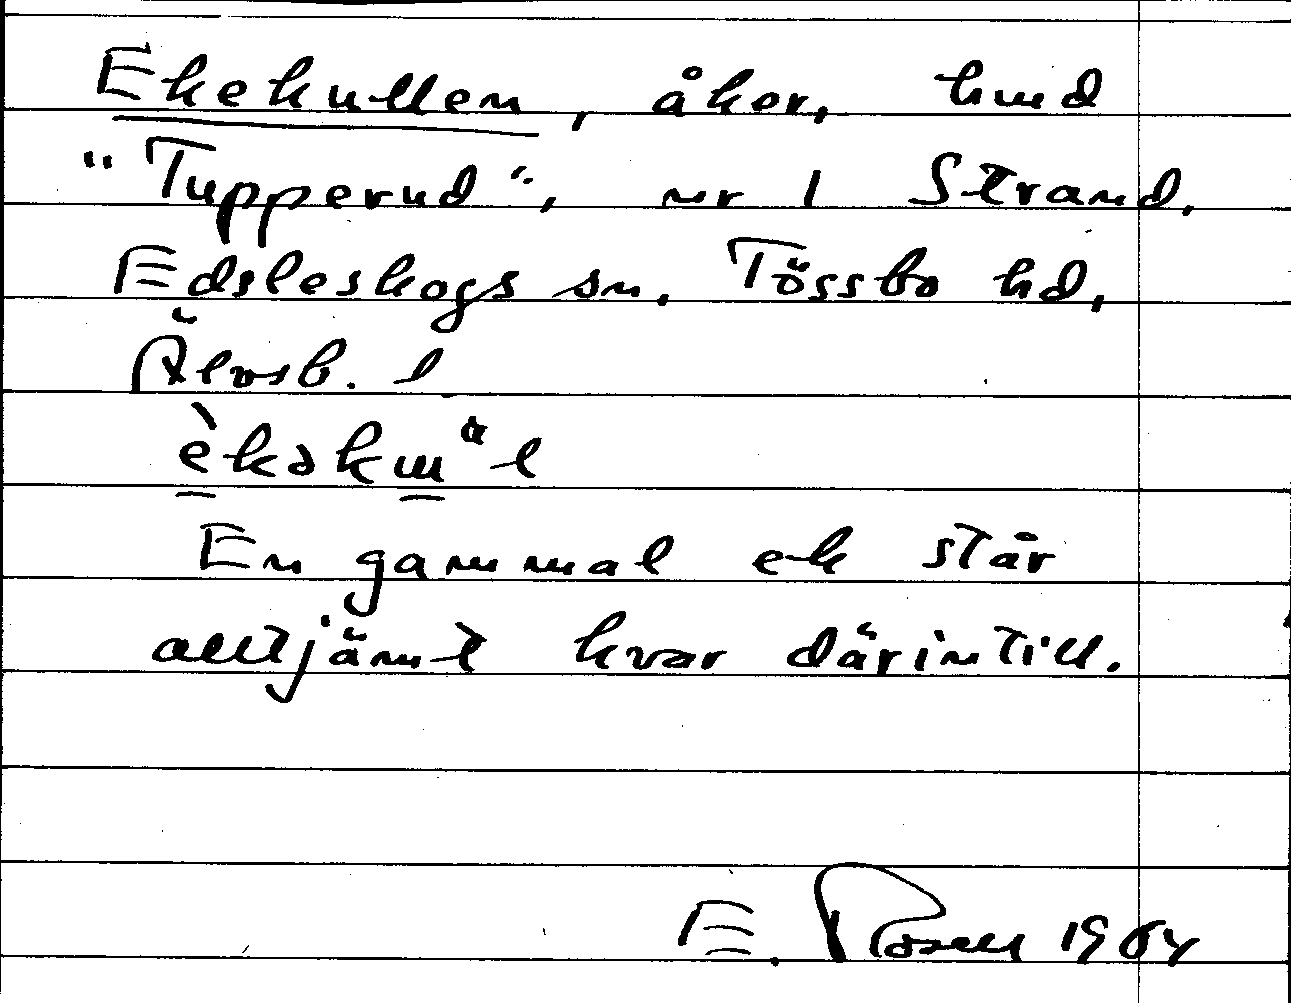 Ekekullen, åker, hmd
"Tupperud", nr 1 Strand,
Edsleskogs sn, Tössbo hd,
Älvsb. l
En gammal ek står
alltjämt kvar därintill.
E. Rosell 1964